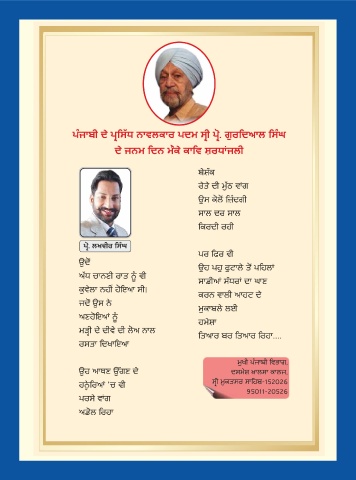 ਪੰਜਾਬੀ ਦੇ ਪ੍ਰਸਿੱਧ ਨਾਵਲਕਾਰ ਪਦਮ ਸ੍ਰੀ ਪ੍ਰੋ. ਗੁਰਦਿਆਲ ਸਿੰਘ
ਦੇ ਜਨਮ ਦਿਨ ਮੌਕੇ ਕਾਵਿ ਸ਼ਰਧਾਂਜਲੀ
ਪ੍ਰੋ. ਲਖਵੀਰ ਸਿੰਘ
ਉਦੋਂ
ਅੱਧ ਚਾਨਣੀ ਰਾਤ ਨੂੰ ਵੀ
ਕੁਵੇਲਾ ਨਹੀਂ ਹੋਇਆ ਸੀ।
ਜਦੋਂ ਉਸ ਨੇ
ਅਣਹੋਇਆਂ ਨੂੰ
ਮੜ੍ਹੀ ਦੇ ਦੀਵੇ ਦੀ ਲੋਅ ਨਾਲ
ਰਸਤਾ ਦਿਖਾਇਆ
ਉਹ ਆਥਣ ਉੱਗਣ ਦੇ
ਹਨੇਰਿਆਂ 'ਚ ਵੀ
ਪਰਸੇ ਵਾਂਗ
ਅਡੋਲ ਰਿਹਾ
ਬੇਸ਼ੱਕ
ਰੇਤੇ ਦੀ ਮੁੱਠ ਵਾਂਗ
ਉਸ ਕੋਲੋਂ ਜ਼ਿੰਦਗੀ
ਸਾਲ ਦਰ ਸਾਲ
ਕਿਰਦੀ ਰਹੀ
ਪਰ ਫਿਰ ਵੀ
ਉਹ ਪਹੁ ਫੁਟਾਲੇ ਤੋਂ ਪਹਿਲਾਂ
ਸਾਡੀਆਂ ਸੱਧਰਾਂ ਦਾ ਘਾਣ
ਕਰਨ ਵਾਲੀ ਆਹਟ ਦੇ
ਮੁਕਾਬਲੇ ਲਈ
ਹਮੇਸ਼ਾ
ਤਿਆਰ ਬਰ ਤਿਆਰ ਰਿਹਾ....
ਮੁਖੀ ਪੰਜਾਬੀ ਵਿਭਾਗ,
ਦਸਮੇਸ਼ ਖ਼ਾਲਸਾ ਕਾਲਜ,
ਸ੍ਰੀ ਮੁਕਤਸਰ ਸਾਹਿਬ-152026
95011-20526